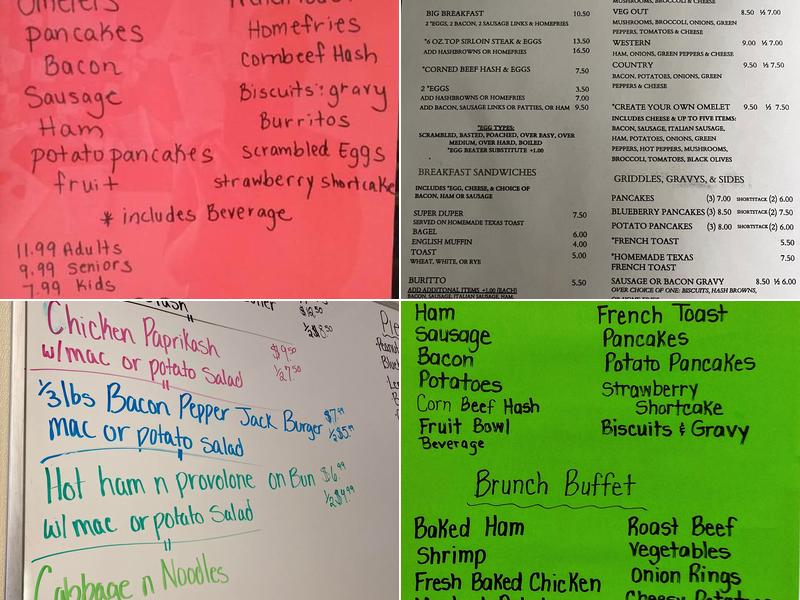 Omelets
pancakes
Bacon
Sausage
Ham
potato pancakes
fruit
Homefries
cornbeef Hash
Biscuits : gravy
Burritos
scrambled Eggs
strawberry shortcake
* includes Beverage
11.99 Adults
9.99 Seniors
7.99 Kids
BIG BREAKFAST 10.50
2 *EGGS, 2 BACON, 2 SAUSAGE LINKS & HOMEFRIES
*6 OZ.TOP SIRLOIN STEAK & EGGS 13.50
ADD HASHBROWNS OR HOMEFRIES 16.50
*CORNED BEEF HASH & EGGS 7.50
2 *EGGS 3.50
ADD HASHBROWNS OR HOMEFRIES 7.00
ADD BACON, SAUSAGE LINKS OR PATTIES, OR HAM 9.50
*EGG TYPES:
SCRAMBLED, BASTED, POACHED, OVER EASY, OVER
MEDIUM, OVER HARD, BOILED
*EGG BEATER SUBSTITUTE +1.00
BREAKFAST SANDWICHES
INCLUDES *EGG, CHEESE, & CHOICE OF
BACON, HAM OR SAUSAGE
SUPER DUPER 7.50
SERVED ON HOMEMADE TEXAS TOAST
BAGEL 6.00
ENGLISH MUFFIN 4.00
TOAST 5.00
WHEAT, WHITE, OR RYE
BURITTO 5.50
ADD ADDITONAL ITEMS +1.00 (EACH)
BACON, SAUSAGE, ITALIAN SAUSAGE, HAM,
MUSHROOMS, BROCCOLI & CHEESE
VEG OUT 8.50 ½ 7.00
MUSHROOMS, BROCCOLI, ONIONS, GREEN
PEPPERS, TOMATOES & CHEESE
WESTERN 9.00 ½ 7.00
HAM, ONIONS, GREEN PEPPERS & CHEESE
COUNTRY 9.50 ½ 7.50
BACON, POTATOES, ONIONS, GREEN
PEPPERS & CHEESE
*CREATE YOUR OWN OMELET 9.50 ½ 7.50
INCLUDES CHEESE & UP TO FIVE ITEMS:
BACON, SAUSAGE, ITALIAN SAUSAGE,
HAM, POTATOES, ONIONS, GREEN
PEPPERS, HOT PEPPERS, MUSHROOMS,
BROCCOLI, TOMATOES, BLACK OLIVES
GRIDDLES, GRAVYS, & SIDES
PANCAKES (3) 7.00 SHORTSTACK (2) 6.00
BLUEBERRY PANCAKES (3) 8.50 SHORTSTACK (2) 7.50
POTATO PANCAKES (3) 8.00 SHORTSTACK (2) 6.00
*FRENCH TOAST 5.50
*HOMEMADE TEXAS 7.50
FRENCH TOAST
SAUSAGE OR BACON GRAVY 8.50 ½ 6.00
OVER CHOICE OF ONE: BISCUITS, HASH BROWNS,
OR HOME FRIES
$12.50
½ $8.50
Chicken Paprikash $9.50
w/mac or potato Salad ½ 7.50
⅓ lbs Bacon Pepper Jack Burger $7.99
mac or potato Salad ½ $5.99
Hot ham n provolone on Bun $6.99
w/mac or potato Salad ½ $4.99
Cabbage n Noodles
Pie
Ham
Sausage
Bacon
Potatoes
Corn Beef Hash
Fruit Bowl
Beverage
French Toast
Pancakes
Potato Pancakes
Strawberry
Shortcake
Biscuits & Gravy
Brunch Buffet
Baked Ham
Shrimp
Fresh Baked Chicken
Roast Beef
Vegetables
Onion Rings
Cheesy Potatoes